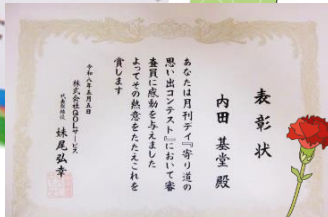 表彰状
内田 基堂 殿
あなたは月刊デイ『寄り道の
思い出コンテスト』において審
査員に感動を与えました
よってその熱意をたたえこれを
賞します
令和八年五月五日
株式会社QOLサービス
代表取締役 妹尾弘幸